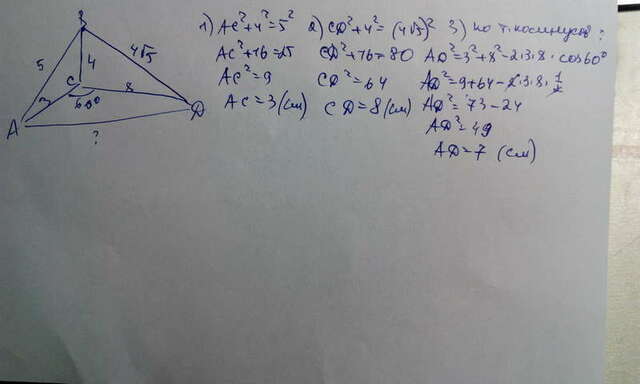 B
5
4
4√5
C
3
60°
8
A
D
?
1) AC²+4²=5²
AC²+16=25
AC²=9
AC=3 (см)
2) CD²+4²=(4√5)²
CD²+16=80
CD²=64
CD=8 (см)
3) по т. косинусов:
AD²=3²+8²-2·3·8·cos60°
AD²=9+64-2·3·8·1/2
AD²=73-24
AD²=49
AD=7 (см)